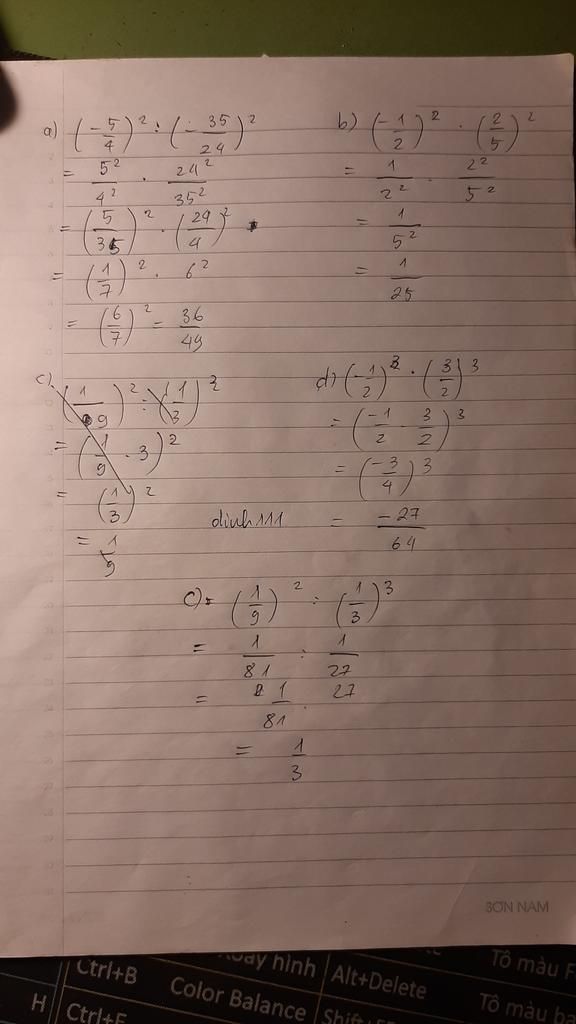 a) (-5/4)² : (-35/24)²
= 5²/4² . 24²/35²
= (5/35)² . (24/4)²
= (1/7)² . 6²
= (6/7)² = 36/49
b) (-1/2)² . (2/5)²
= 1/2² . 2²/5²
= 1/5²
= 1/25
c) (1/9)² : (1/3)²
= (1/9 . 3)²
= (1/3)²
= 1/9
d) (-1/2)³ . (3/2)³
= (-1/2 . 3/2)³
= (-3/4)³
= -27/64
dinh111
c) = (1/9)² : (1/3)³
= 1/81 : 1/27
= 1/81 . 27
= 1/3
SƠN NAM
Ctrl+B
Xoay hình
Alt+Delete
Tô màu F
H
Ctrl+E
Color Balance
Tô màu ba